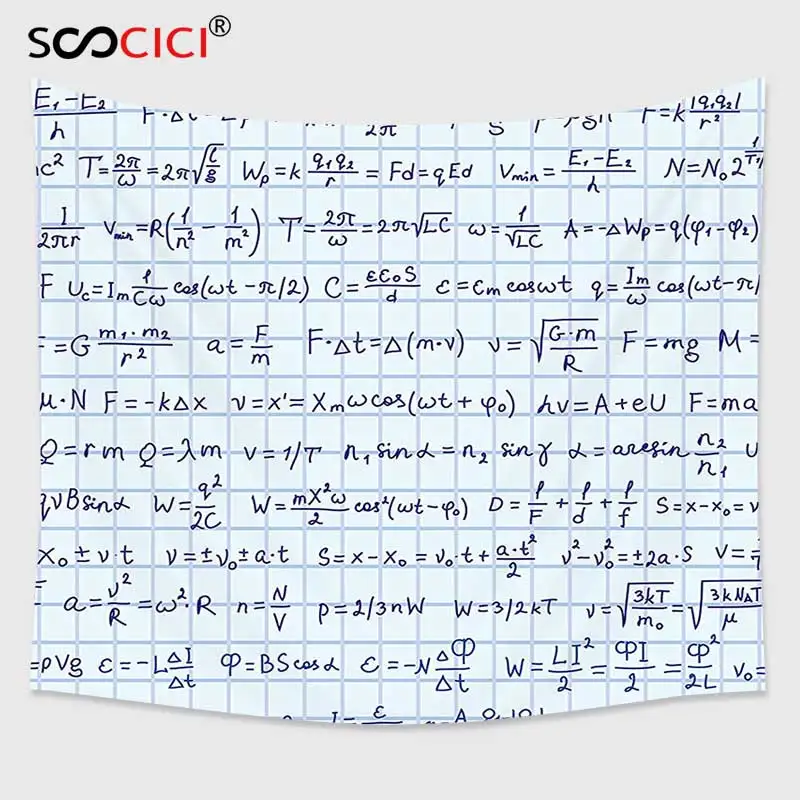 SOOCICI®
E₁-E₂/h F·Δt 2π F=k|q₁q₂|/r²
c² T=2π/ω=2π√(ℓ/g) Wp=k q₁q₂/r=Fd=qEd Vmin=E₁-E₂/h N=N₀2
I/2πr Vmin=R(1/n²-1/m²) T=2π/ω=2π√LC ω=1/√LC A=-ΔWp=q(φ₁-φ₂)
F Uc=Im 1/Cω cos(ωt-π/2) C=εε₀S/d ε=εm cosωt q=Im/ω cos(ωt-π/
=G m₁·m₂/r² a=F/m F·Δt=Δ(m·v) v=√(G·m/R) F=mg M=
μ·N F=-kΔx v=x'=Xmωcos(ωt+φ₀) hν=A+eU F=ma
Q=rm Q=λm ν=1/T n₁sinα=n₂sinγ α=arcsin n₂/n₁ U
qvBsinα W=q²/2C W=mX²ω/2 cos²(ωt-φ₀) D=1/F+1/d+1/f S=x-x₀=v
X₀±v·t v=±v₀±a·t S=x-x₀=v₀·t+a·t²/2 v²-v₀²=±2a·S V=
a=v²/R=ω²·R n=N/V p=2/3nW W=3/2kT v=√(3kT/m₀)=√(3kNAT/μ)
=ρVg ε=-LΔI/Δt Φ=BScosα ε=-NΔΦ/Δt W=LI²/2=ΦI/2=Φ²/2L v₀=
I=ε